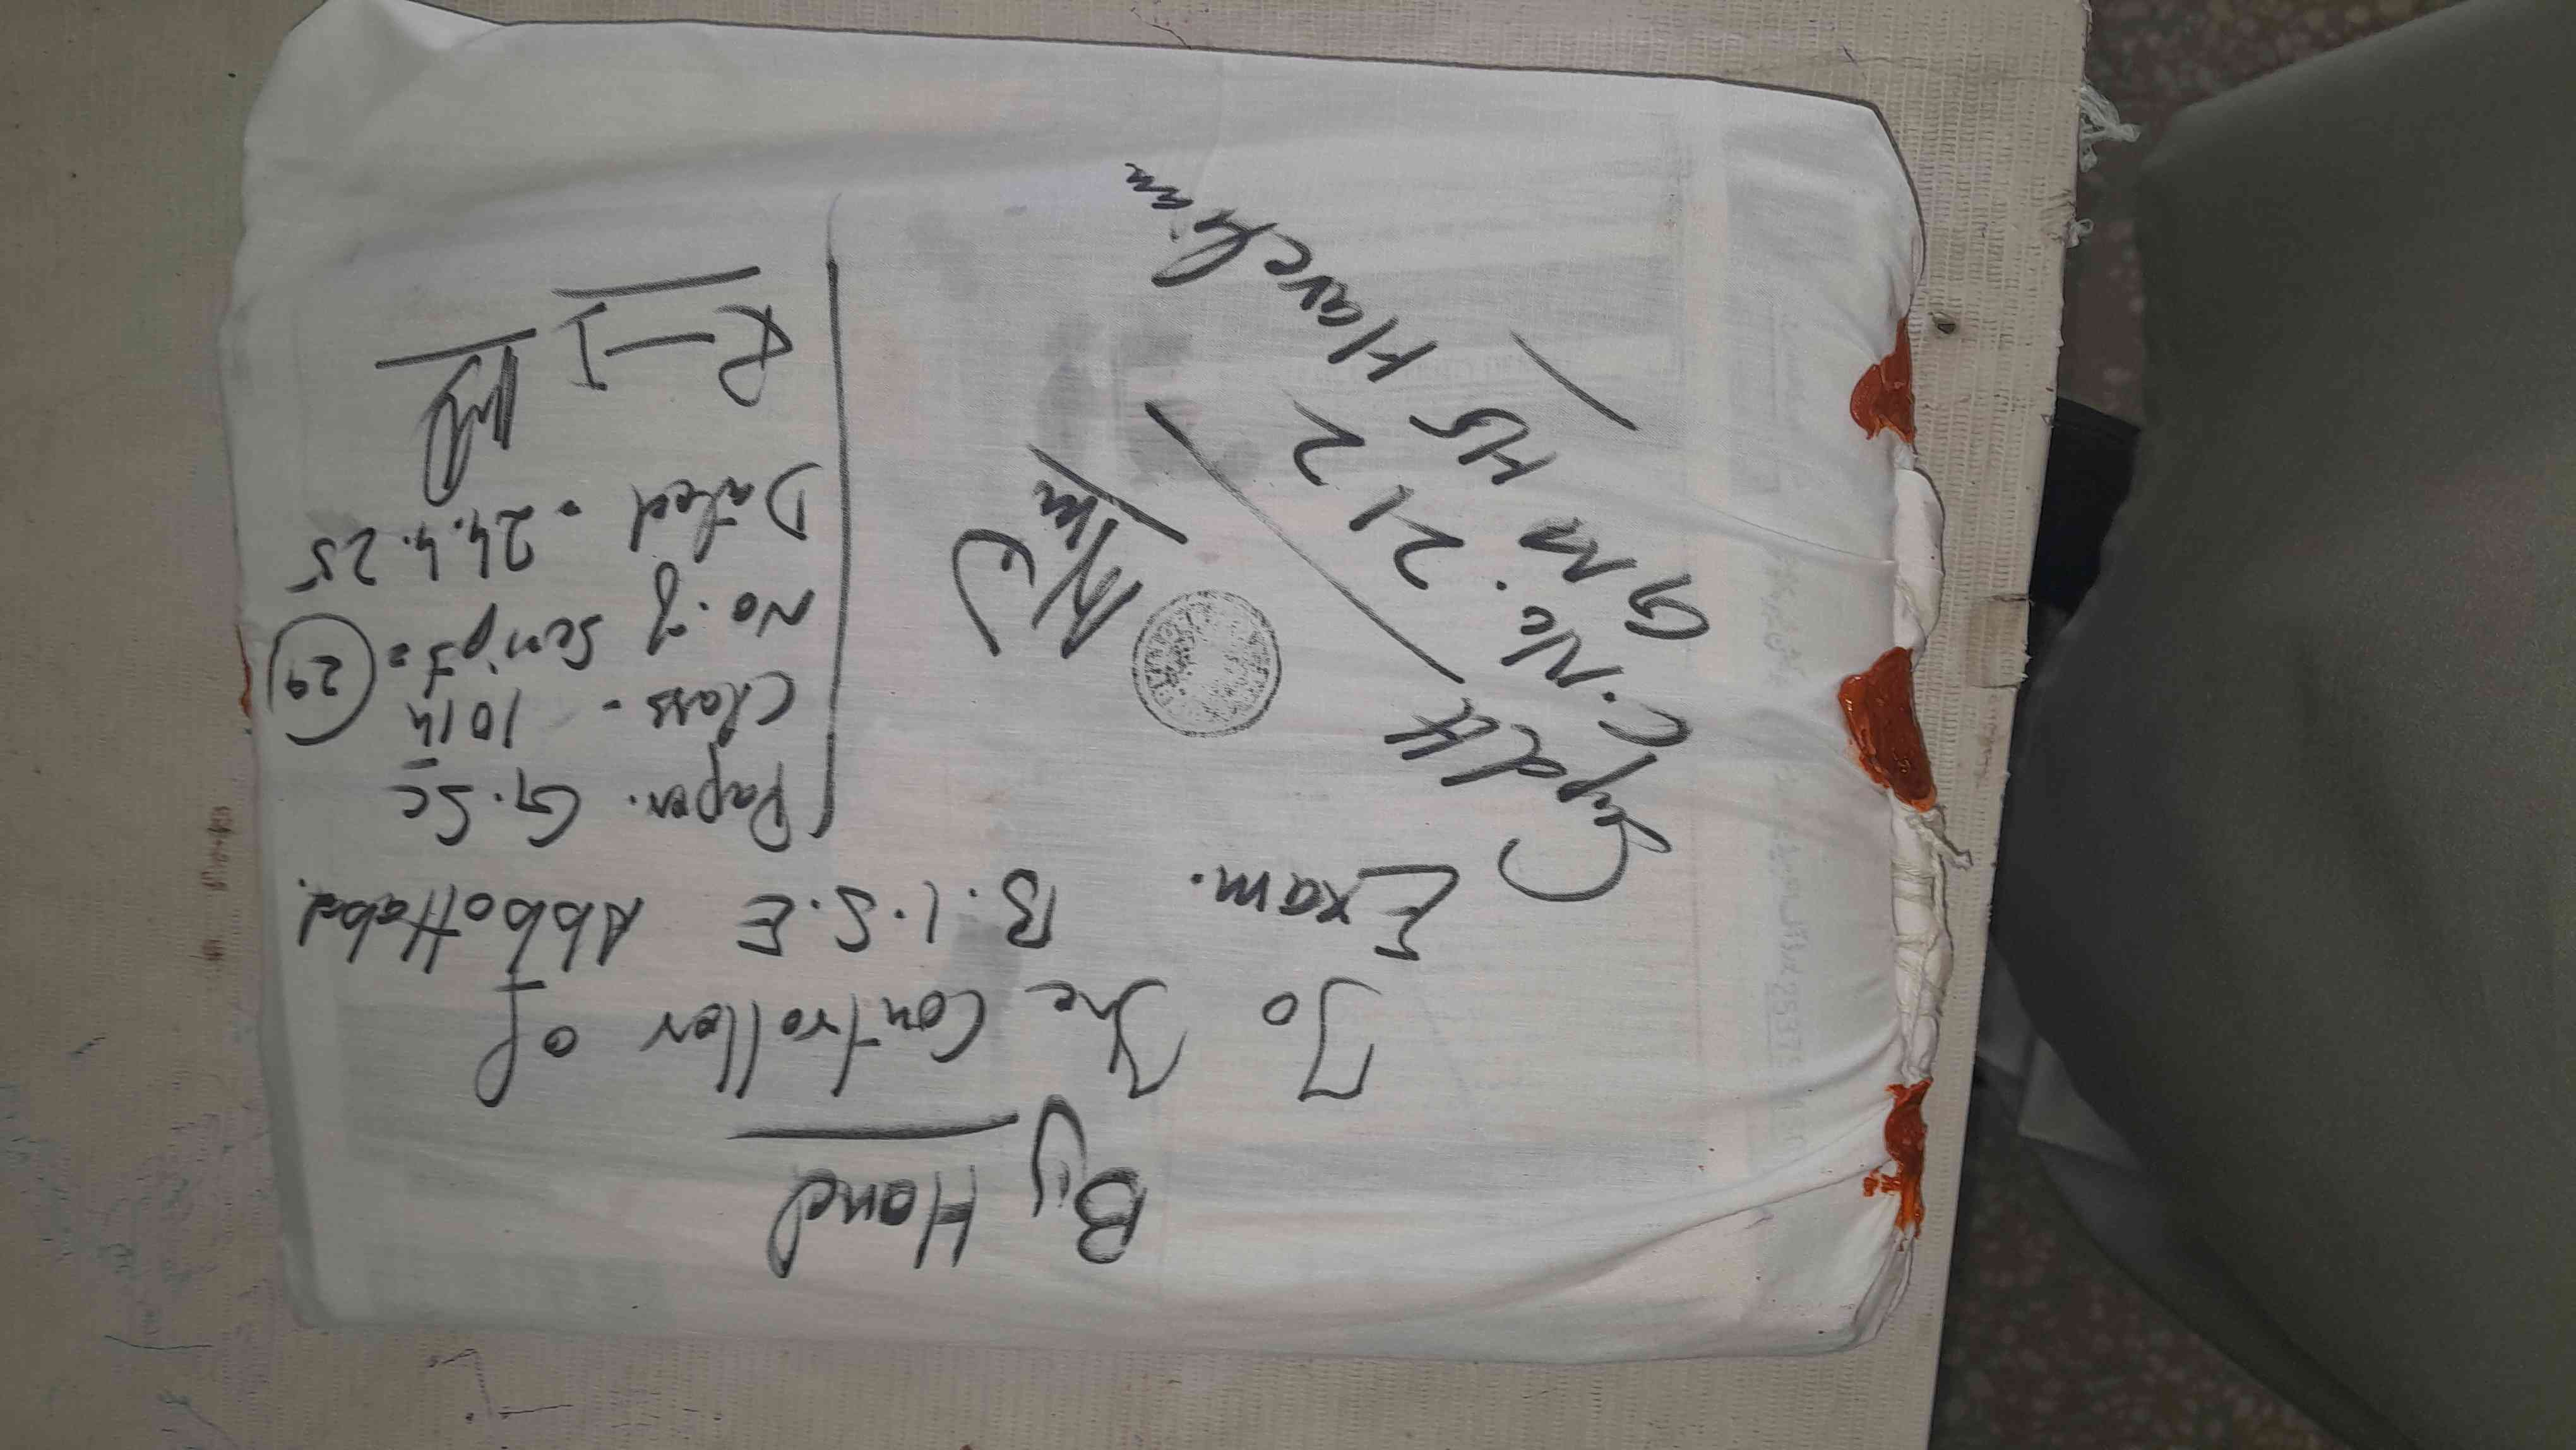 By Hand
To The Controller of
Exam. B.I.S.E Abbottabad.
Paper. G.Sc
Class - 10th
No. of Scripts = 29
Dated - 24.4.25
R-I
Supdtt
C.No. 212
HS Havelian